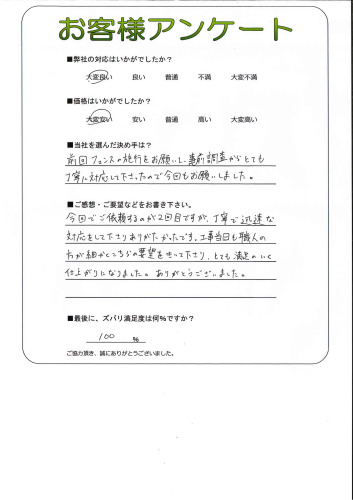 お客様アンケート
■弊社の対応はいかがでしたか？
大変良い 良い 普通 不満 大変不満
■価格はいかがでしたか？
大変安い 安い 普通 高い 大変高い
■当社を選んだ決め手は？
前回フェンスの施行をお願いし、事前調査からとても
丁寧に対応して下さったので今回もお願いしました。
■ご感想・ご要望などをお書き下さい。
今回でご依頼するのが2回目ですが、丁寧で迅速な
対応をして下さりありがたかったです。工事当日も職人の
方が細かいところらの要望を聞いて下さり、とても満足のいく
仕上がりになりました。ありがとうございました。
■最後に、ズバリ満足度は何％ですか？
100 ％
ご協力頂き、誠にありがとうございました。